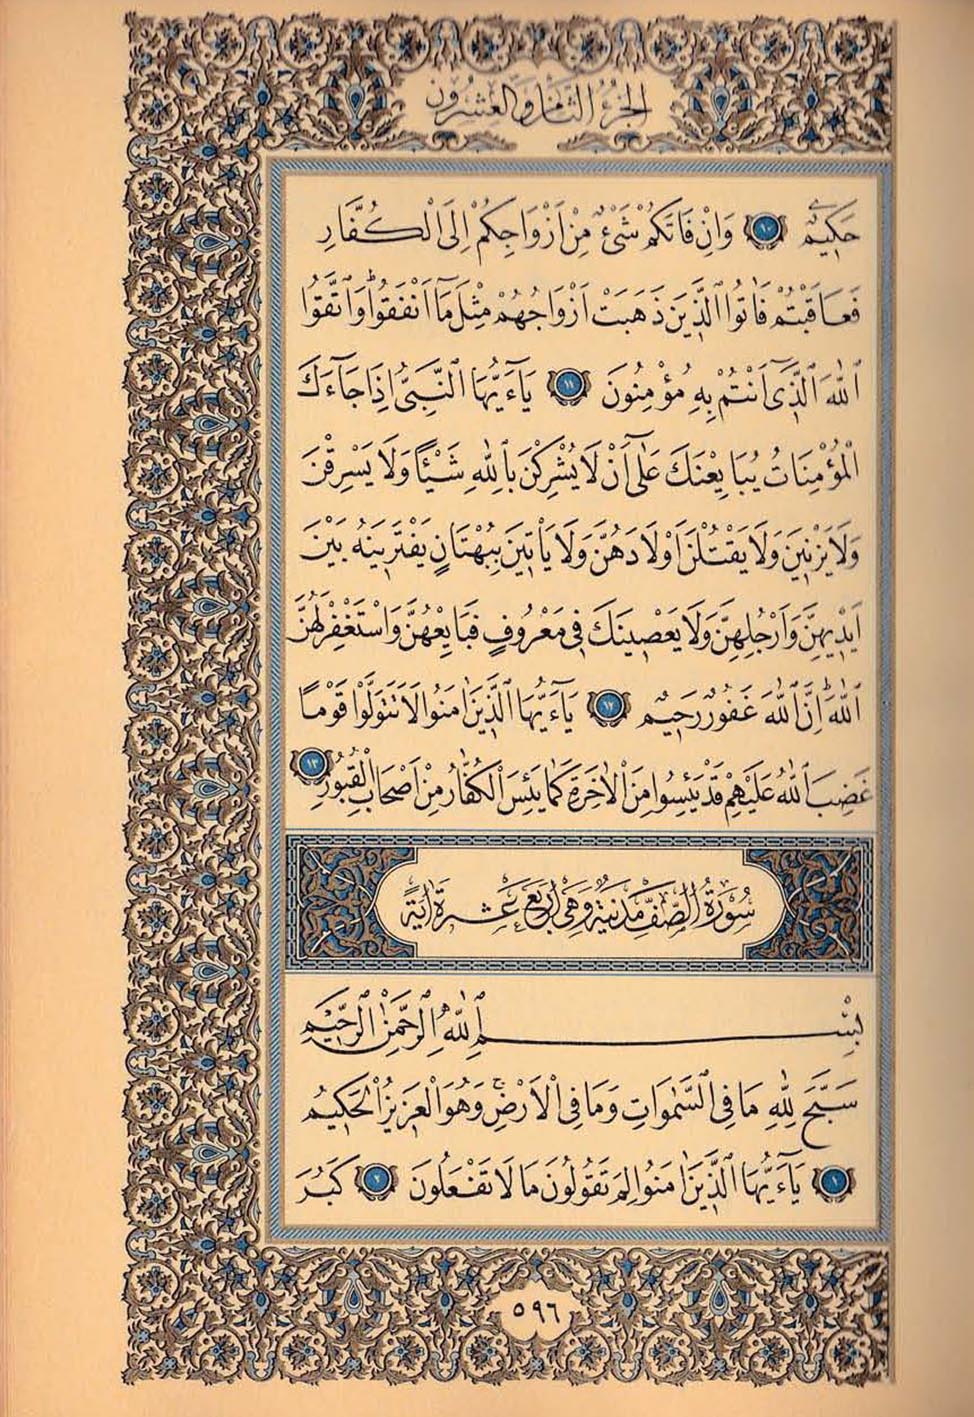 الجزء الثامن والعشرون
حَكِيمٌ ١٠ وَاِنْ فَاتَكُمْ شَيْءٌ مِنْ اَزْوَاجِكُمْ اِلَى الْكُفَّارِ
فَعَاقَبْتُمْ فَاٰتُوا الَّذِينَ ذَهَبَتْ اَزْوَاجُهُمْ مِثْلَ مَٓا اَنْفَقُوا وَاتَّقُوا
اللّٰهَ الَّذِٓى اَنْتُمْ بِهِ مُؤْمِنُونَ ١١ يَٓاءَيُّهَا النَّبِىُّ اِذَا جَٓاءَكَ
الْمُؤْمِنَاتُ يُبَايِعْنَكَ عَلٰٓى اَنْ لَا يُشْرِكْنَ بِاللّٰهِ شَيْئًا وَلَا يَسْرِقْنَ
وَلَا يَزْنِينَ وَلَا يَقْتُلْنَ اَوْلَادَهُنَّ وَلَا يَأْتِينَ بِبُهْتَانٍ يَفْتَرِينَهُ بَيْنَ
اَيْدِيهِنَّ وَاَرْجُلِهِنَّ وَلَا يَعْصِينَكَ فِى مَعْرُوفٍ فَبَايِعْهُنَّ وَاسْتَغْفِرْ لَهُنَّ
اللّٰهَ اِنَّ اللّٰهَ غَفُورٌ رَحِيمٌ ١٢ يَٓاءَيُّهَا الَّذِينَ اٰمَنُوا لَا تَتَوَلَّوْا قَوْمًا
غَضِبَ اللّٰهُ عَلَيْهِمْ قَدْ يَئِسُوا مِنَ الْاٰخِرَةِ كَمَا يَئِسَ الْكُفَّارُ مِنْ اَصْحَابِ الْقُبُورِ ١٣
سُورَةُ الصَّفِّ مَدَنِيَّةٌ وَهِىَ اَرْبَعَ عَشْرَةَ اٰيَةً
بِسْمِ اللّٰهِ الرَّحْمٰنِ الرَّحِيمِ
سَبَّحَ لِلّٰهِ مَا فِى السَّمٰوَاتِ وَمَا فِى الْاَرْضِ وَهُوَ الْعَزِيزُ الْحَكِيمُ
١ يَٓاءَيُّهَا الَّذِينَ اٰمَنُوا لِمَ تَقُولُونَ مَا لَا تَفْعَلُونَ ٢ كَبُرَ
٥٩٦